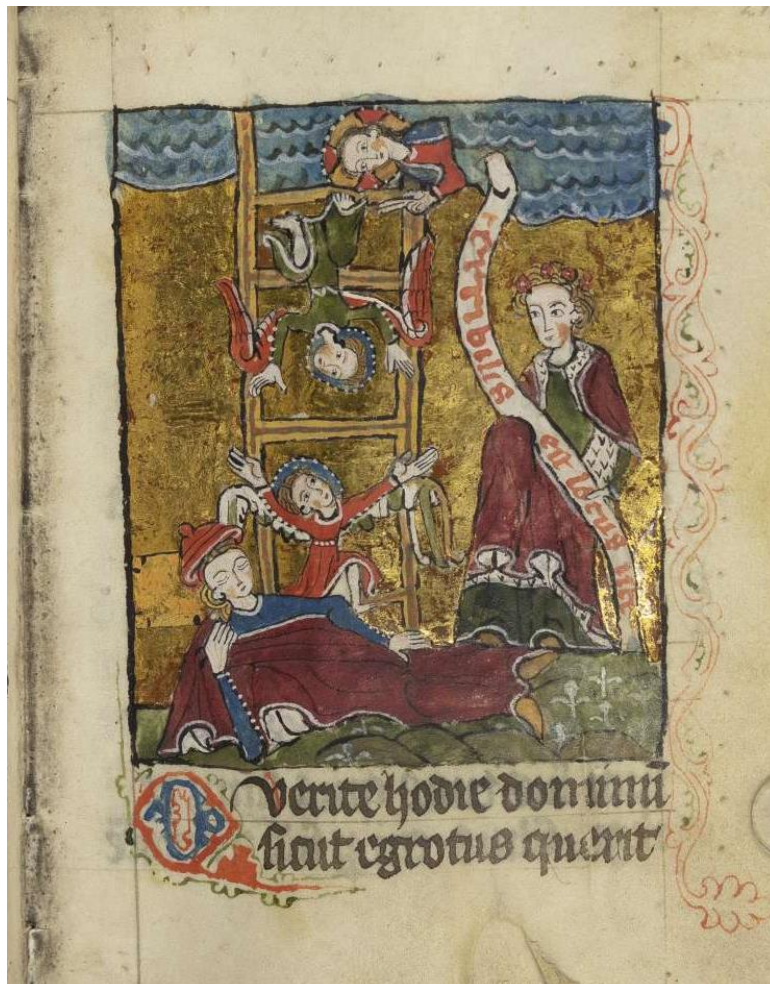 terribilis est locus iste
Querite hodie dominū
sicut egrotus querit